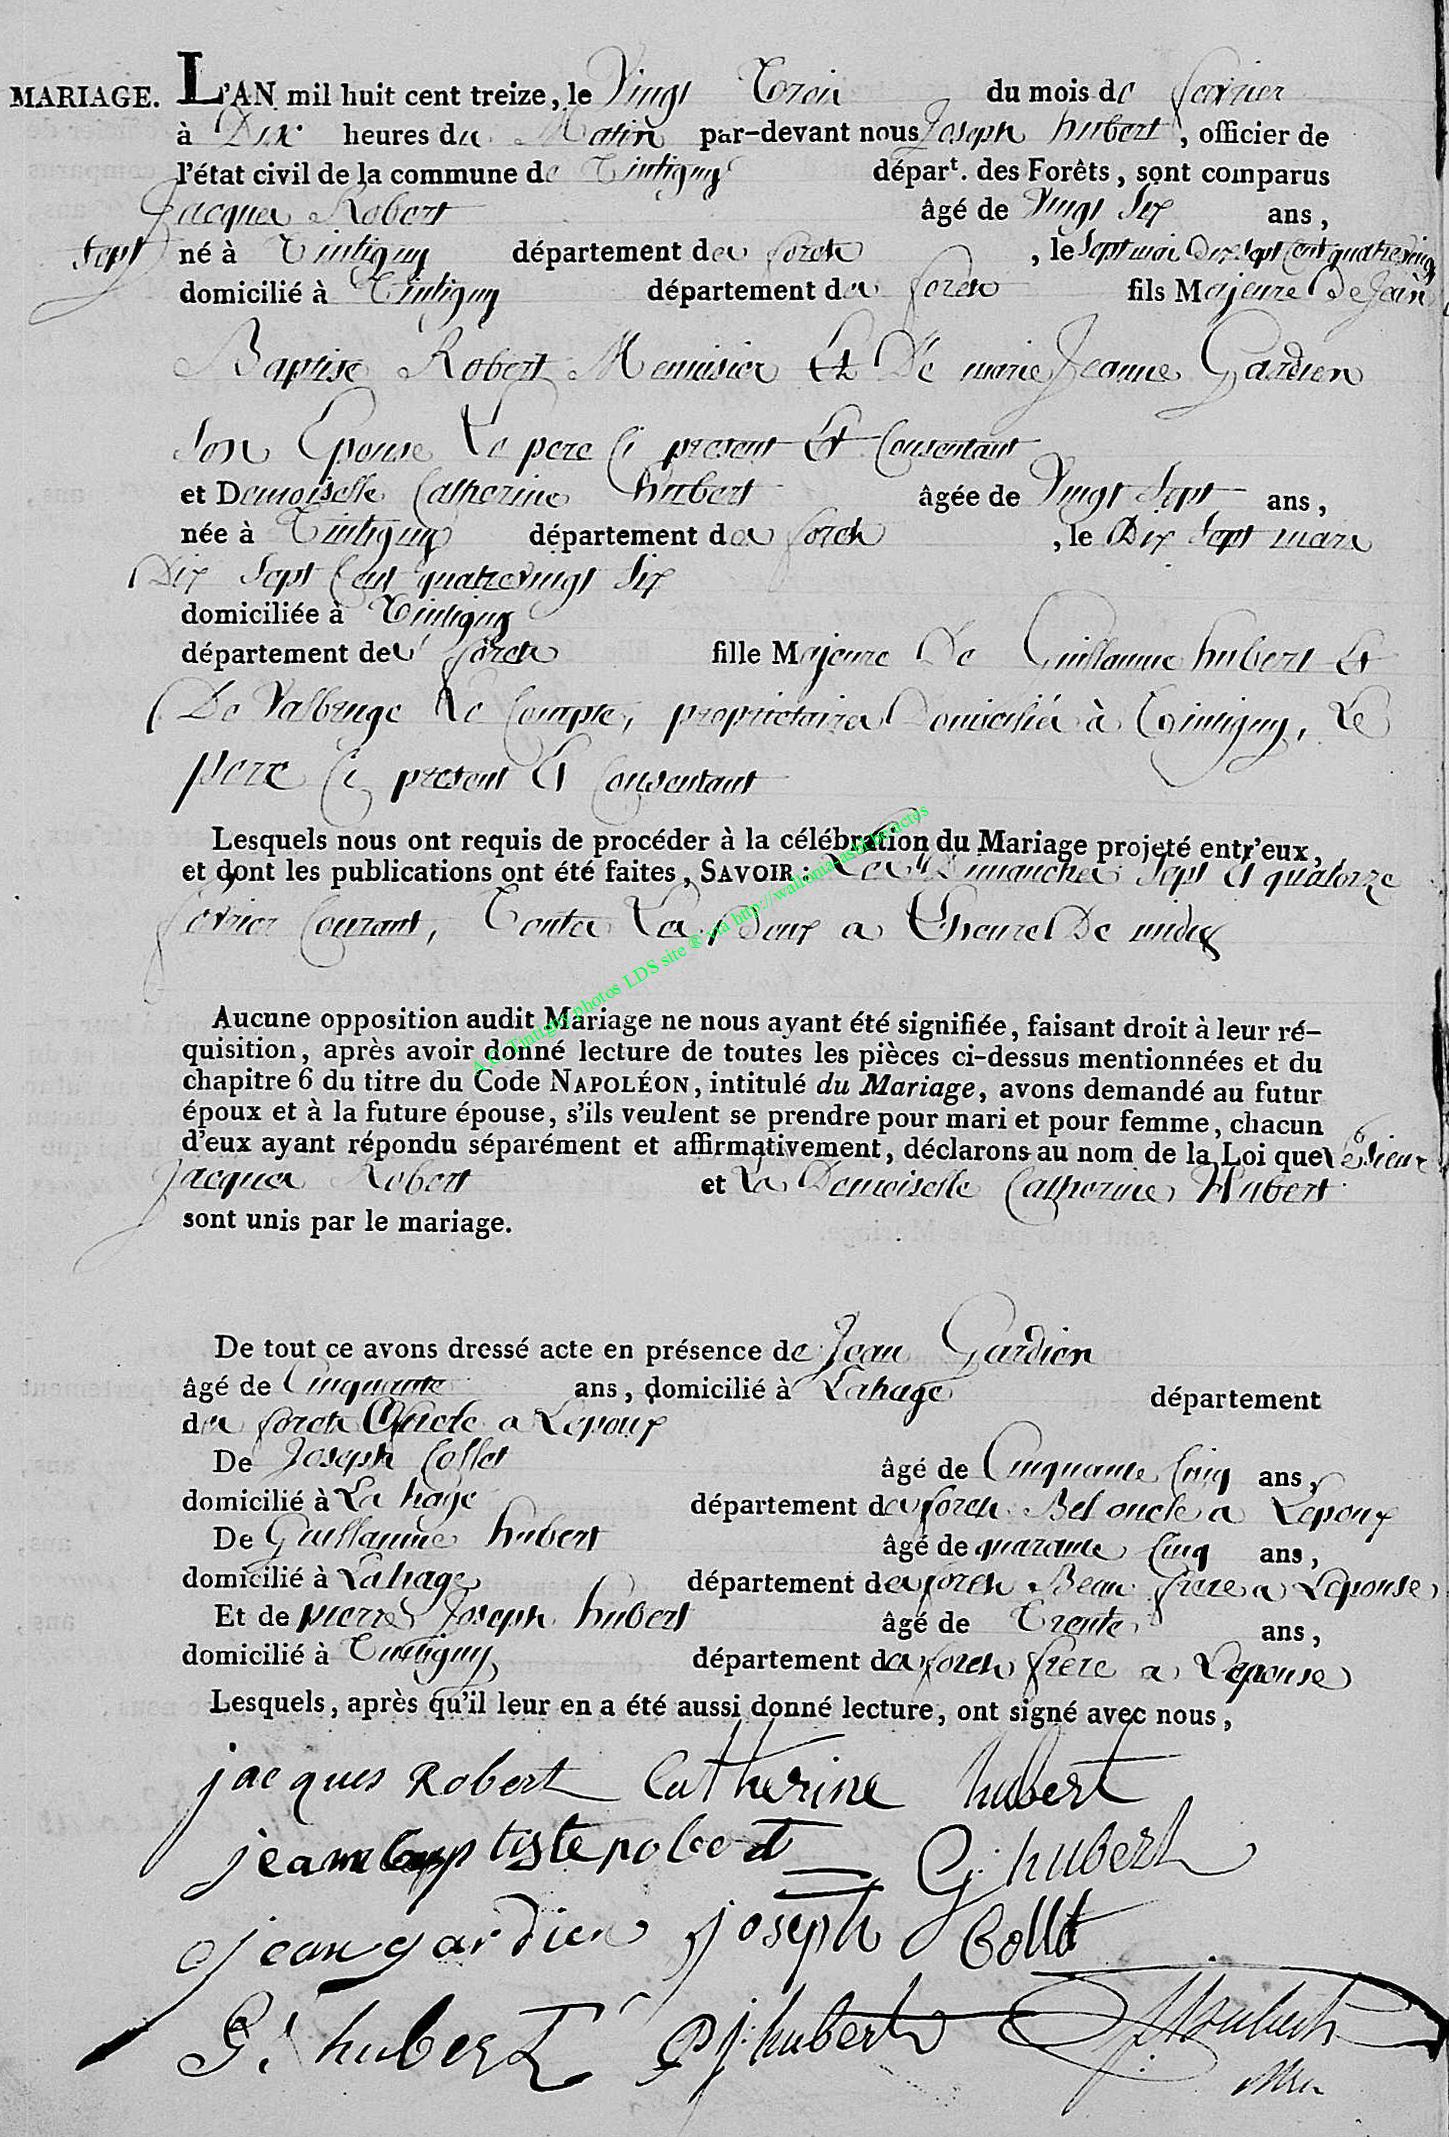 MARIAGE. L'AN mil huit cent treize, le Vingt Trois du mois de fevrier
à Dix heures du Matin par-devant nous Joseph hubert, officier de
l'état civil de la commune de Tintigny départ. des Forêts, sont comparus
Jacques Robert âgé de Vingt Six ans,
sept né à Tintigny département des forets, le Sept mai Dix Sept Cent quatrevingt
domicilié à Tintigny département des forets fils Majeure De Jean
Baptise Robert Menuisier Et De marie Jeanne Gardien
Son Epouse Le pere Ci present Et Consentant
et Demoiselle Catherine hubert âgée de Vingt Sept ans,
née à Tintigny département des forets, le Dix Sept mars
Dix Sept Cent quatrevingt Six
domiciliée à Tintigny
département des forets fille Majeure De Guillaume hubert Et
De Valbruge Le Compte, proprietaires Domiciliés à Tintigny, Le
pere Ci present Et Consentant
Lesquels nous ont requis de procéder à la célébration du Mariage projeté entr'eux,
et dont les publications ont été faites, SAVOIR: Les Dimanches Sept Et quatorze
fevrier Courant, Toutes Les Deux a L'heure De midy
Aucune opposition audit Mariage ne nous ayant été signifiée, faisant droit à leur ré-
quisition, après avoir donné lecture de toutes les pièces ci-dessus mentionnées et du
chapitre 6 du titre du Code NAPOLÉON, intitulé du Mariage, avons demandé au futur
époux et à la future épouse, s'ils veulent se prendre pour mari et pour femme, chacun
d'eux ayant répondu séparément et affirmativement, déclarons au nom de la Loi que le Sieur
Jacques Robert et La Demoiselle Catherine Hubert
sont unis par le mariage.
De tout ce avons dressé acte en présence de Jean Gardien
âgé de Cinquante ans, domicilié à Lahage département
des forets Oncle a Lepoux
De Joseph Collet âgé de Cinquante Cinq ans,
domicilié à La hage département des forets Bel oncle a Lepoux
De Guillaume hubert âgé de quarante Cinq ans,
domicilié à Lahage département des forets Beau frere a Lepouse
Et de pierre Joseph hubert âgé de Trente ans,
domicilié à Tintigny département des forets frere a Lepouse
Lesquels, après qu'il leur en a été aussi donné lecture, ont signé avec nous,
jacques Robert Catherine hubert
jean baptiste robert G: hubert
jean gardien joseph Collet
G: hubert P j: hubert J. Hubert
A.C. Tintigny photos LDS site ® via http://wallonia-asbl.be/actes